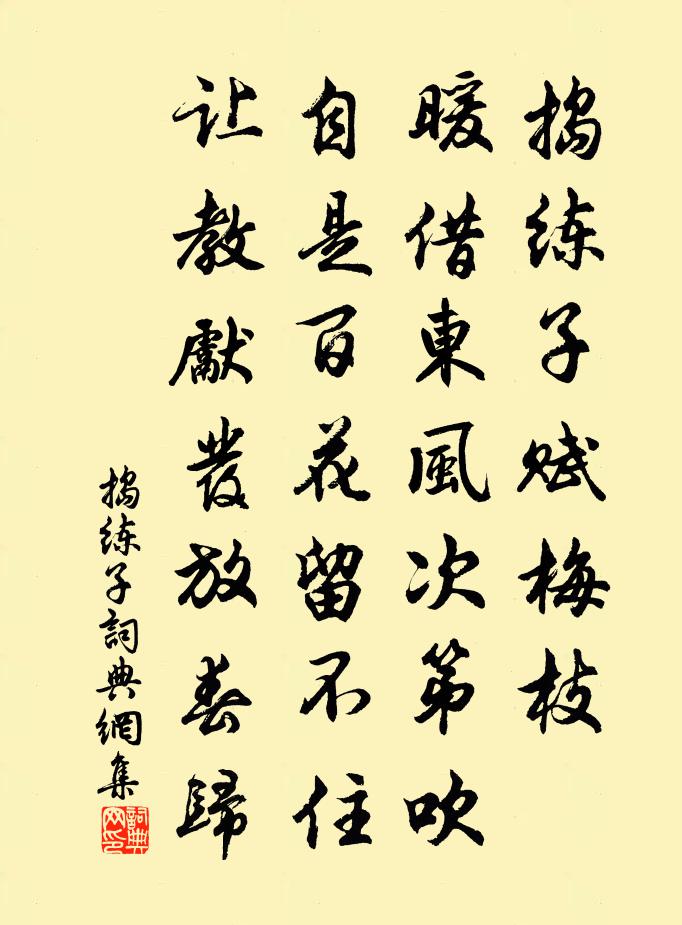 捣练子赋梅枝
暖借東風次第吹
自是百花留不住
让教獻發放春歸
捣练子詞典網集
詞典網印